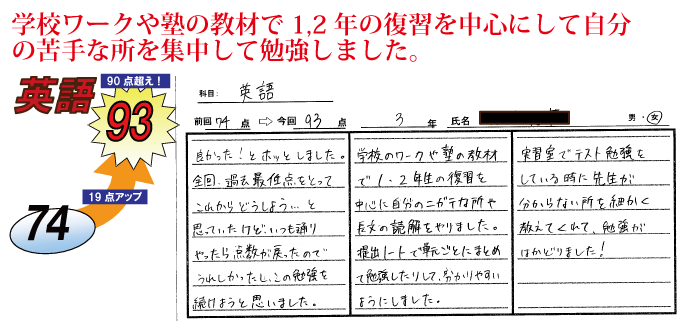 学校ワークや塾の教材で1,2年の復習を中心にして自分
の苦手な所を集中して勉強しました。
英語
90点超え！
93
19点アップ
74
科目: 英語
前回 74 点 ⇨ 今回 93 点 3 年 氏名 男・女
良かった！とホッとしました。
全回、過去最低点をとって
これからどうしよう…と
思っていたけど、いつも通り
やったら点数が戻ったので
うれしかったし、この勉強を
続けようと思いました。
学校のワークや塾の教材
で1・2年生の復習を
中心に自分のニガテな所や
長文の読解をやりました。
提出ノートで単元ごとにまとめ
て勉強したりして、分かりやすい
ようにしました。
実習室でテスト勉強を
している時に先生が
分からない所を細かく
教えてくれて、勉強が
はかどりました！